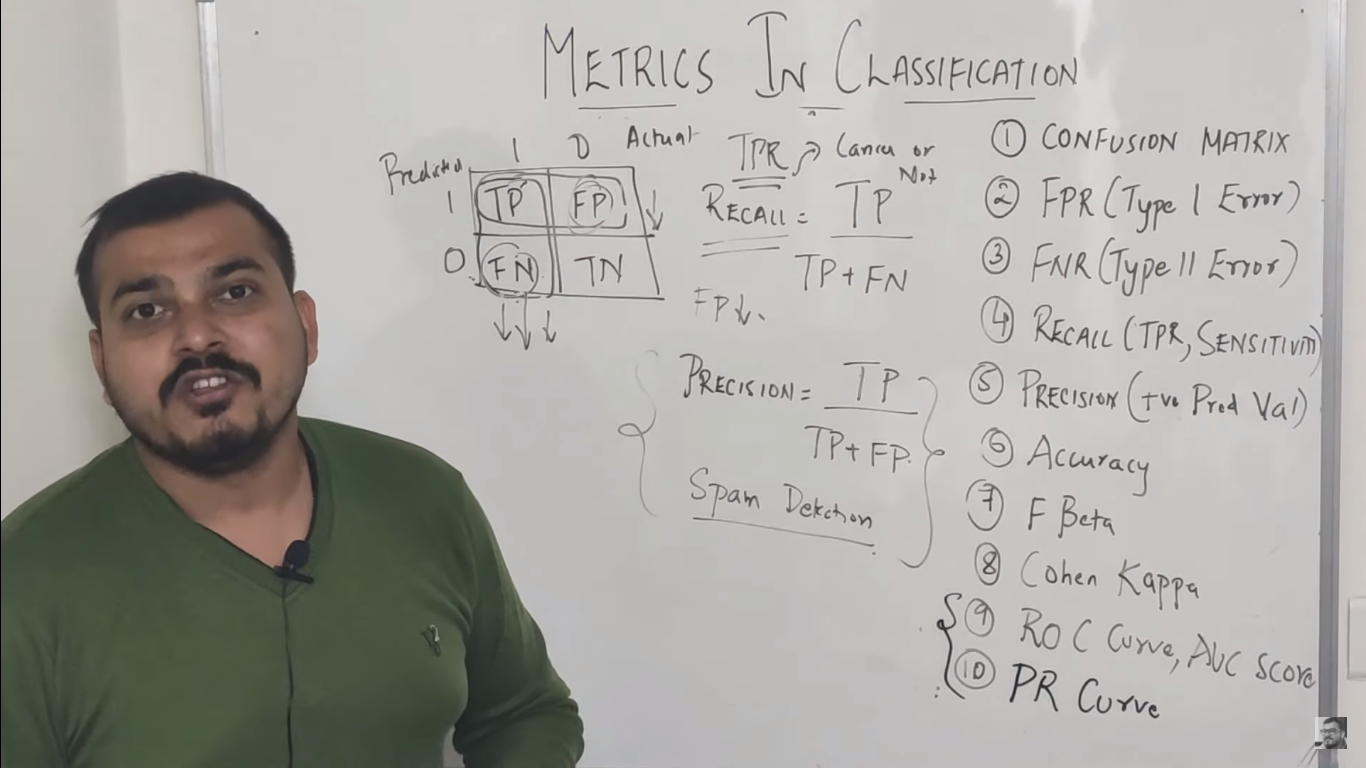 METRICS IN CLASSIFICATION
1 0 Actual
Predicted
1 TP FP
0 FN TN
TPR → Cancer or Not
RECALL = TP
TP + FN
FP ↓
PRECISION = TP
TP + FP
Spam Detection
① CONFUSION MATRIX
② FPR (Type I Error)
③ FNR (Type II Error)
④ RECALL (TPR, SENSITIVITY)
⑤ PRECISION (+ve Pred Val)
⑥ Accuracy
⑦ F Beta
⑧ Cohen Kappa
⑨ ROC Curve, AUC Score
⑩ PR Curve